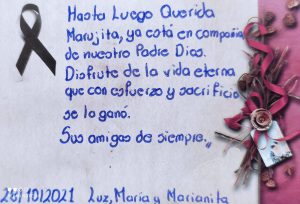 Hasta Luego Querida
Marujita, ya está en compañia
de nuestro Padre Dios.
Disfrute de la vida eterna
que con esfuerzo y sacrificio
se la ganó.
Sus amigas de siempre."
28/10/2021 Luz, María y Marianita